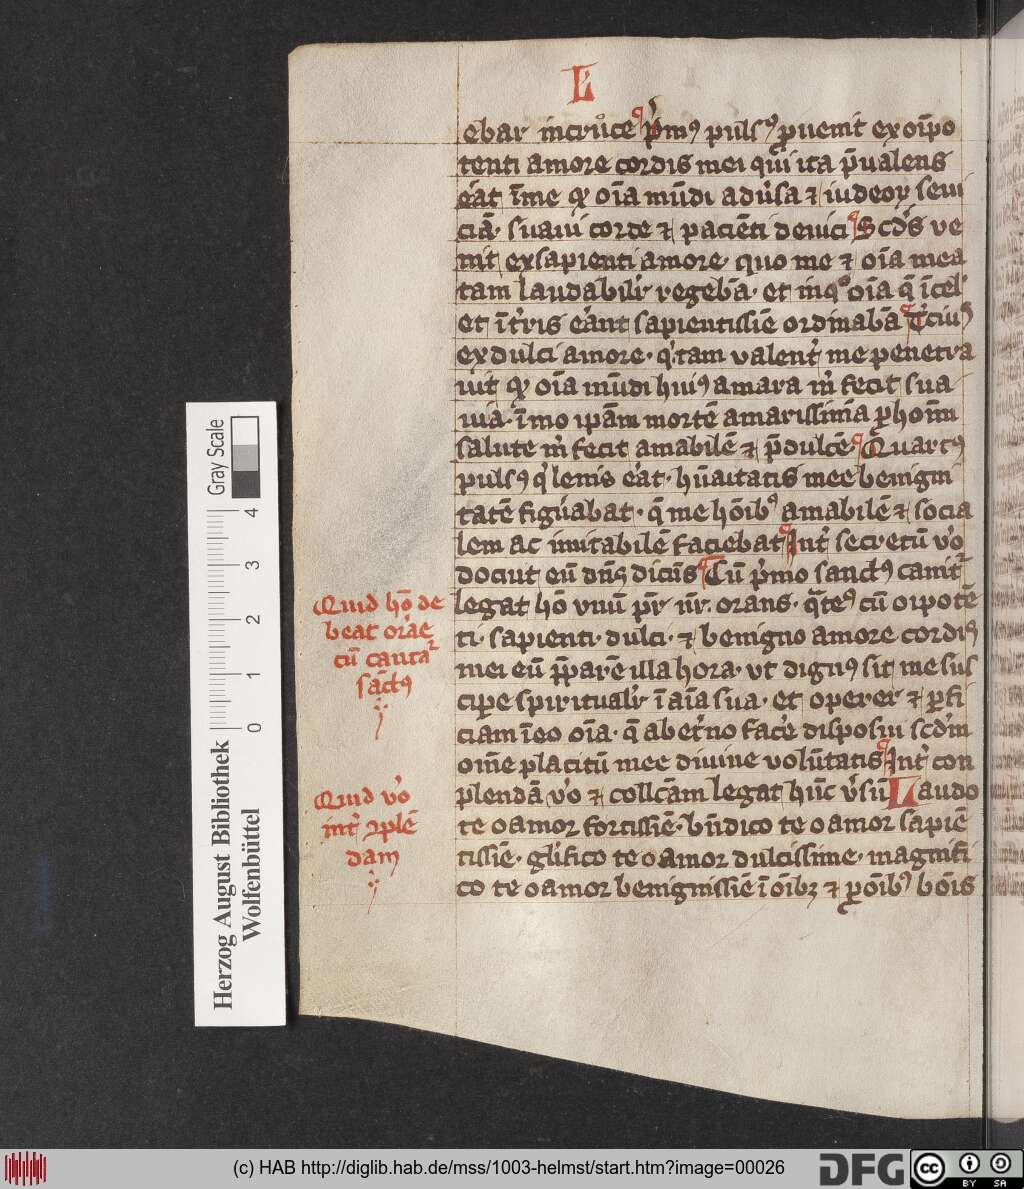 L
ebar in cruce p̄mꝰ pulsꝰ ꝓuenit ex oīpo
tenti amore cordis mei qui ita p̄ualens
erat ī me qꝫ oīa mūdi adūsa ⁊ iudeoꝝ seui
ciā· suaui corde ⁊ pacīeti deuici Scds̄ ve
nit ex sapienti amore· quo me ⁊ oīa mea
tam laudabilir̄ regebā· et inqͣ oīa q̄ ī cel̄
et ī tr̄ris erānt sapientissīe ordinabā Tr̄ciuꝰ
ex dulci amore· qͥ tam valent̄ me penetra
uit qꝫ oīa mūdi huiꝰ amara m̄ fecit sua
uiā· īmo ipām mortē amarissimā ꝑ hoīm
salute m̄ fecit amabilē ⁊ p̄dulcē· Quartꝰ
pulsꝰ qͥ lenis erat· hūaitatis mee benigni
tatē figurabat· q̄ me hōibꝰ amabilē ⁊ socia
lem ac imitabilē faciebat Int̄ secretū v̊o
docuit eū dn̄s dicēs Cū p̄mo sanctꝰ cantr̄
legat hō vnū pr̄ nr̄· orans· qͣteꝰ cū oīpotē
ti· sapienti· dulci· ⁊ benigno amore cordis
mei eū p̄parē illa hora· vt dignꝰ sit me sus
cipe spiritualir̄ ī aīa sua· et operer ⁊ ꝑfi
ciam ī eo oīa· q̄ ab et̄no face disposui scdm̄
om̄e placitū mee diuine volūtatis Int̄ con
plendā v̊o ⁊ collcām legat hūc v̄sū Laudo
te o amor fortissīe· bn̄dico te o amor sapiē
tissīe· glīfico te o amor dulcissime· magnifi
co te o amor benignissīe ī oībꝫ ⁊ ꝓ oībꝰ bonis
Quid hō de
beat orāe
cū cantaꝛ
sāctꝰ
Quid v̊o
int̄ ꝯplē
dam
Gray Scale
0 1 2 3 4
Herzog August Bibliothek
Wolfenbüttel
(c) HAB http://diglib.hab.de/mss/1003-helmst/start.htm?image=00026
DFG
cc BY SA